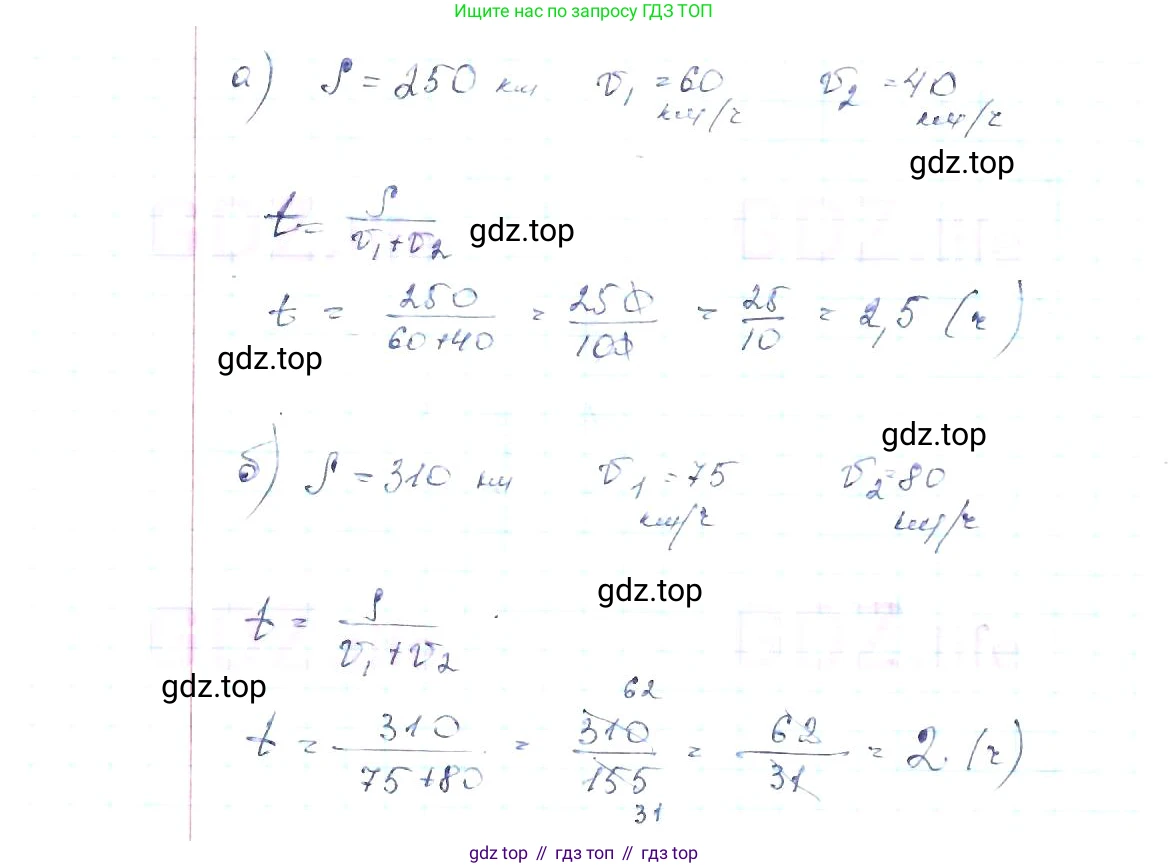 Ищите нас по запросу ГДЗ ТОП
а) S = 250 км v₁ = 60 км/ч v₂ = 40 км/ч
gdz.top
t = S/(v₁+v₂) gdz.top
t = 250/(60+40) = 250/100 = 25/10 = 2,5 (ч)
gdz.top
gdz.top
б) S = 310 км v₁ = 75 км/ч v₂ = 80 км/ч
gdz.top
t = S/(v₁+v₂)
gdz.top
62
t = 310/(75+80) = 310/155 = 62/31 = 2 (ч)
31
gdz top // гдз топ // гдз top